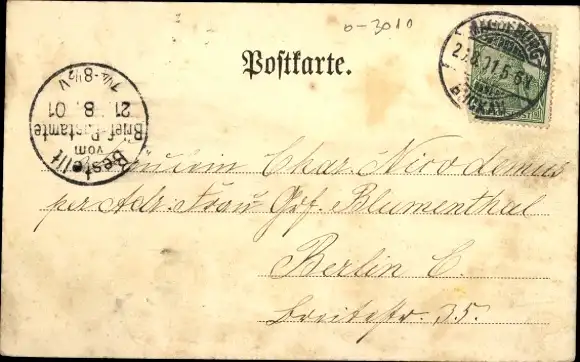 0-3010
Postkarte.
MAGDEBURG
BUCKAU
5-6N
Bestellt
vom
Brief-Postamte
21. 8. 01
7¼-8½V
Fräulein Char. Nicodemus
per Adr. Frau Grf. Blumenthal
Berlin C.
Breitestr. 35.